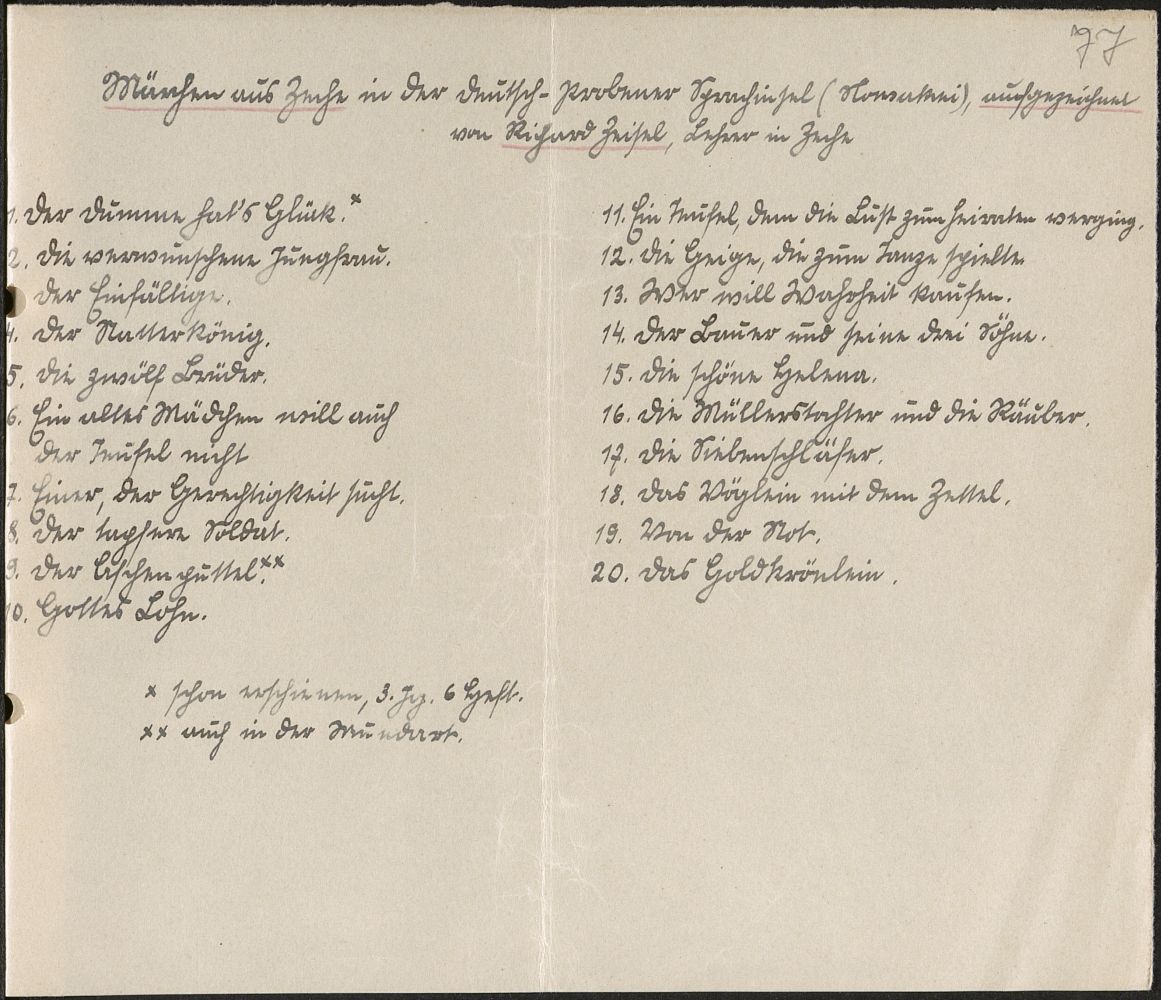 77
Märchen aus Zeche in der Deutsch-Probener Sprachinsel (Slowakei), aufgezeichnet
von Richard Zeisel, Lehrer in Zeche
1. Der Dumme hat's Glück.*
2. Die verwunschene Jungfrau.
Der Einfältige.
4. Der Natterkönig.
5. Die zwölf Brüder.
6. Ein altes Mädchen will auch
der Teufel nicht
7. Einer, der Gerechtigkeit sucht.
8. Der tapfere Soldat.
9. Der Aschenputtel.**
10. Gottes Lohn.
* schon erschienen, 3. Jrg. 6 Heft.
** auch in der Mundart.
11. Ein Teufel, dem die Lust zum Heiraten verging.
12. Die Geige, die zum Tanze spielte
13. Wer will Wahrheit kaufen.
14. Der Bauer und seine drei Söhne.
15. Die schöne Helena.
16. Die Müllerstochter und die Räuber.
17. Die Siebenschläfer.
18. Das Vöglein mit dem Zettel.
19. Von der Not.
20. Das Goldkrönlein.